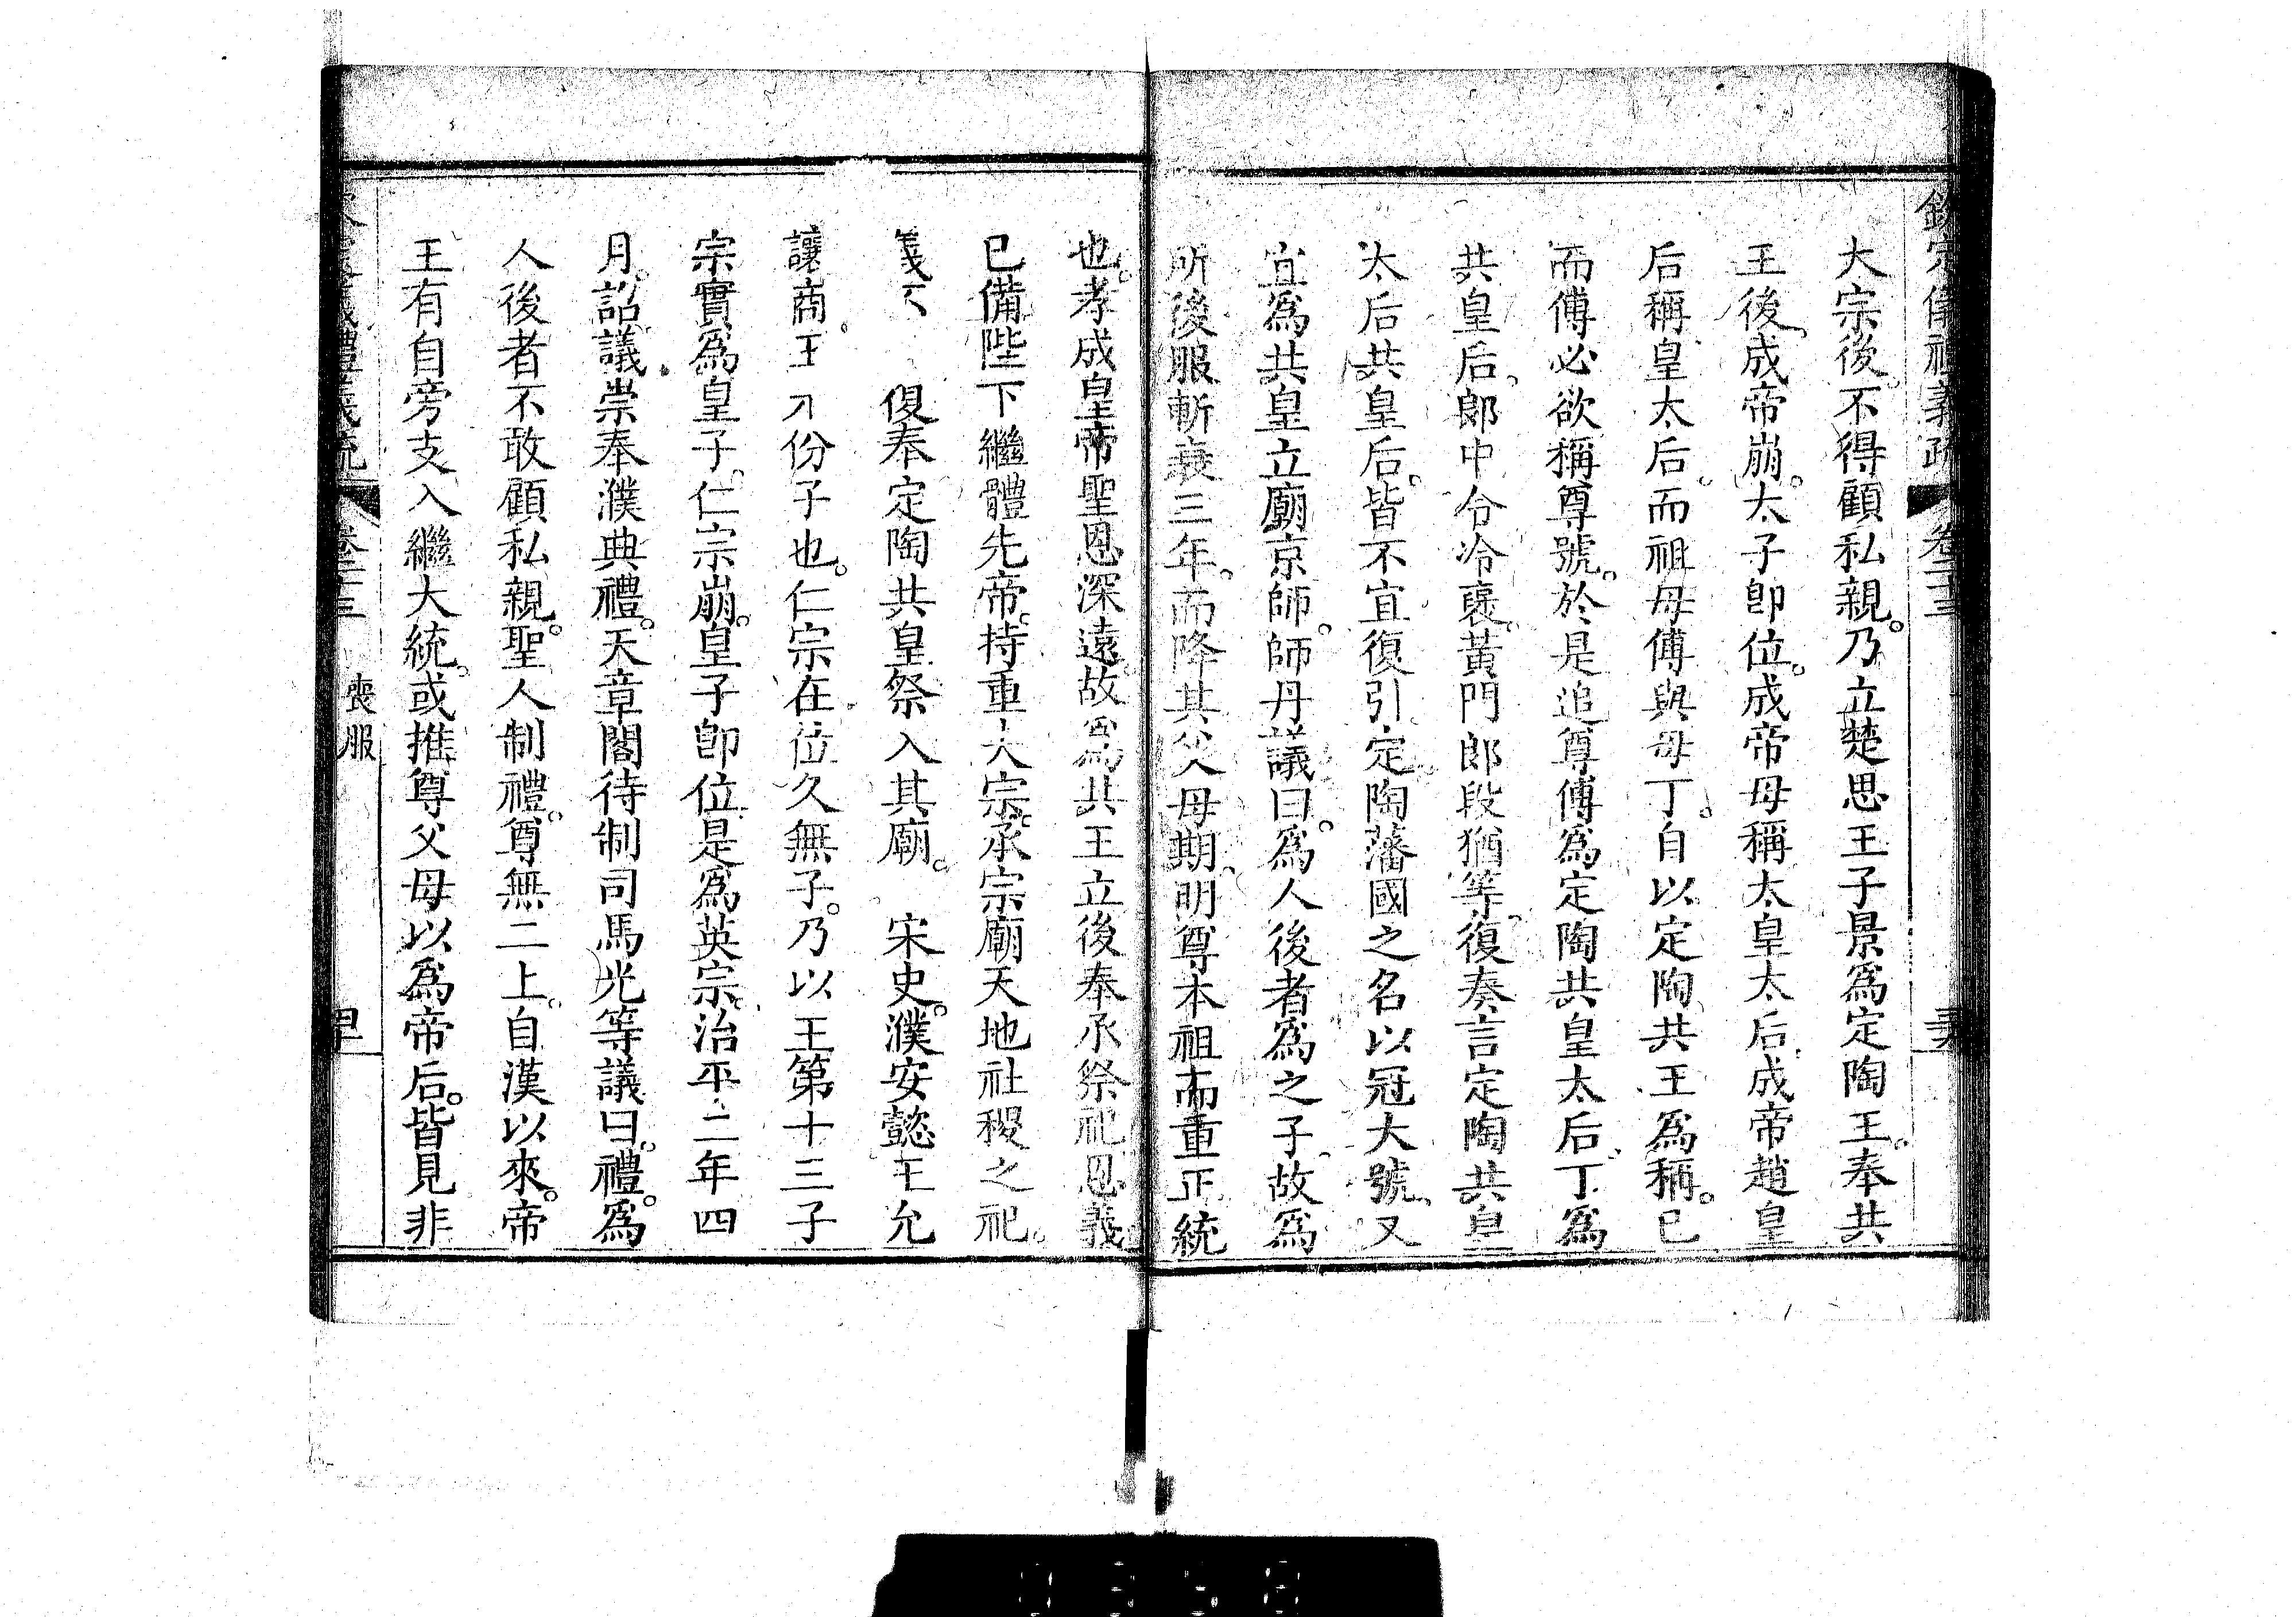 欽定儀禮義疏 卷二十三
大宗後。不得顧私親。乃立楚思王子景爲定陶王。奉共
王後。成帝崩。太子卽位。成帝母稱太皇太后。成帝趙皇
后稱皇太后。而祖母傅與母丁。自以定陶共王爲稱。已
而傅必欲稱尊號。於是追尊傅爲定陶共皇太后。丁爲
共皇后。郎中令冷襃。黃門郎段猶等。復奏言定陶共皇
太后共皇后。皆不宜復引定陶藩國之名以冠大號。又
宜爲共皇立廟京師。師丹議曰。爲人後者爲之子。故爲
所後服斬衰三年。而降其父母期。明尊本祖而重正統
也。孝成皇帝聖恩深遠。故爲共王立後奉承祭祀。恩義
已備。陛下繼體先帝。持重大宗。承宗廟天地社稷之祀。
義不 復奉定陶共皇祭入其廟。 宋史。濮安懿王允
讓商王 份子也。仁宗在位久無子。乃以王第十三子
宗實爲皇子。仁宗崩。皇子卽位。是爲英宗。治平二年四
月。詔議崇奉濮典禮。天章閣待制司馬光等議曰。禮。爲
人後者不敢顧私親。聖人制禮。尊無二上。自漢以來。帝
王有自旁支入繼大統。或推尊父母以爲帝后。皆見非
義禮義疏 卷二十三 喪服